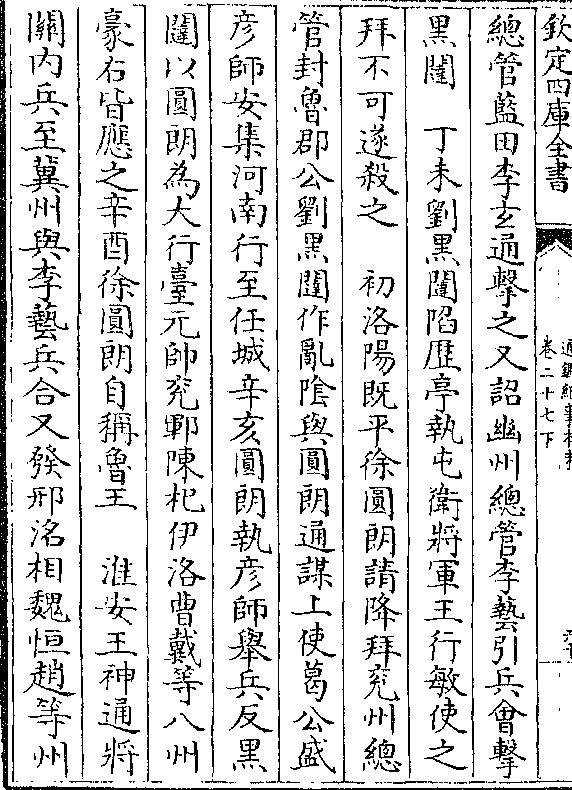 欽定四庫全書
通鑑紀事本末
卷二十七下
總管藍田李玄通擊之又詔幽州總管李藝引兵會擊
黑闥　丁未劉黑闥陷歷亭執屯衛將軍王行敏使之
拜不可遂殺之　初洛陽既平徐圓朗請降拜兗州總
管封魯郡公劉黑闥作亂隂與圓朗通謀上使葛公盛
彦師安集河南行至任城辛亥圓朗執彦師舉兵反黑
闥以圓朗為大行臺元帥兗鄆陳杞伊洛曹戴等八州
豪右皆應之辛酉徐圓朗自稱魯王　淮安王神通將
關内兵至冀州與李藝兵合又發邢洺相魏恒趙等州